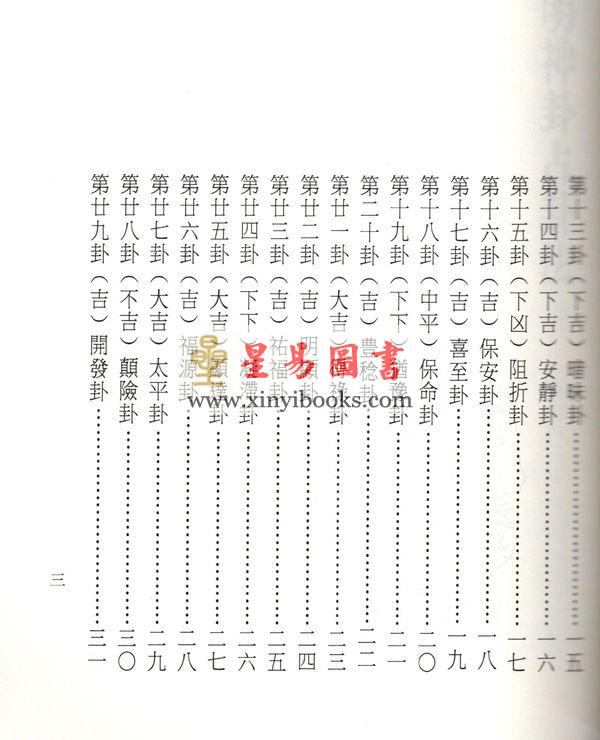 第十三卦（下吉）暗昧卦⋯⋯一五
第十四卦（下吉）安靜卦⋯⋯一六
第十五卦（下凶）阻折卦⋯⋯一七
第十六卦（吉）保安卦⋯⋯一八
第十七卦（吉）喜至卦⋯⋯一九
第十八卦（中平）保命卦⋯⋯二〇
第十九卦（下下）猶豫卦⋯⋯二一
第二十卦（吉）豊稔卦⋯⋯二二
第廿一卦（大吉）祿卦⋯⋯二三
第廿二卦（吉）明顯卦⋯⋯二四
第廿三卦（吉）祐福卦⋯⋯二五
第廿四卦（下下）滯卦⋯⋯二六
第廿五卦（大吉）顯達卦⋯⋯二七
第廿六卦（吉）福源卦⋯⋯二八
第廿七卦（大吉）太平卦⋯⋯二九
第廿八卦（不吉）顛險卦⋯⋯三〇
第廿九卦（吉）開發卦⋯⋯三一
三
星易圖書
www.xinyibooks.com